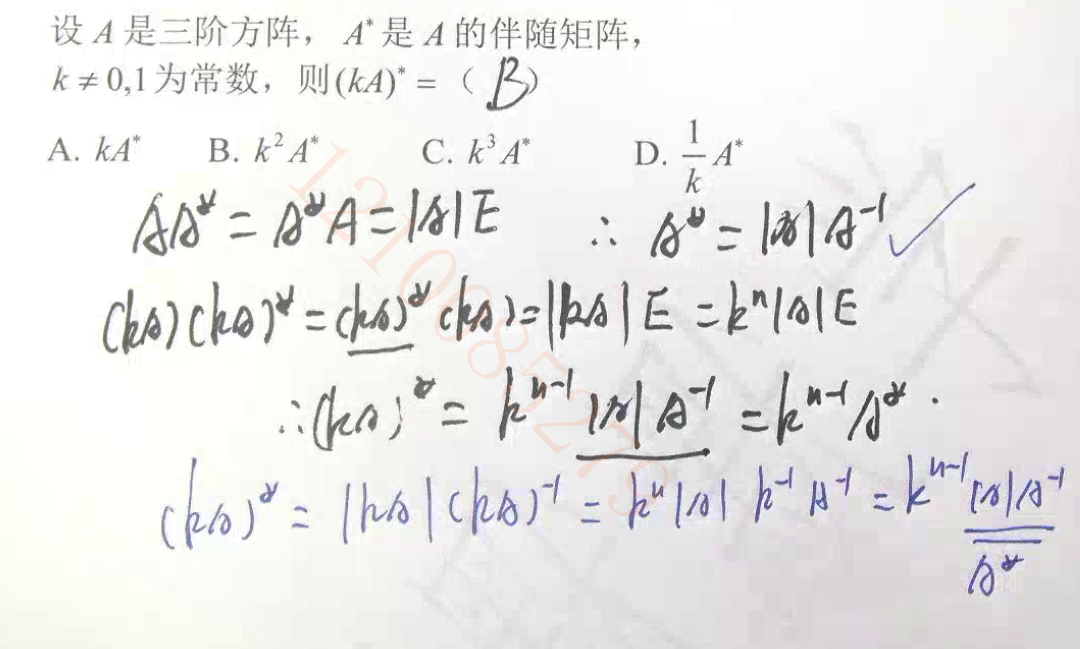 设 A 是三阶方阵， A* 是 A 的伴随矩阵，
k ≠ 0,1为常数，则(kA)* = （ B ）
A. kA* B. k²A* C. k³A* D. 1/k A*
AA* = A*A = |A|E ∴ A* = |A|A⁻¹ ✓
(kA)(kA)* = (kA)*(kA) = |kA|E = kⁿ|A|E
∴ (kA)* = kⁿ⁻¹|A|A⁻¹ = kⁿ⁻¹A*.
(kA)* = |kA|(kA)⁻¹ = kⁿ|A| k⁻¹ A⁻¹ = kⁿ⁻¹|A|A⁻¹
A*